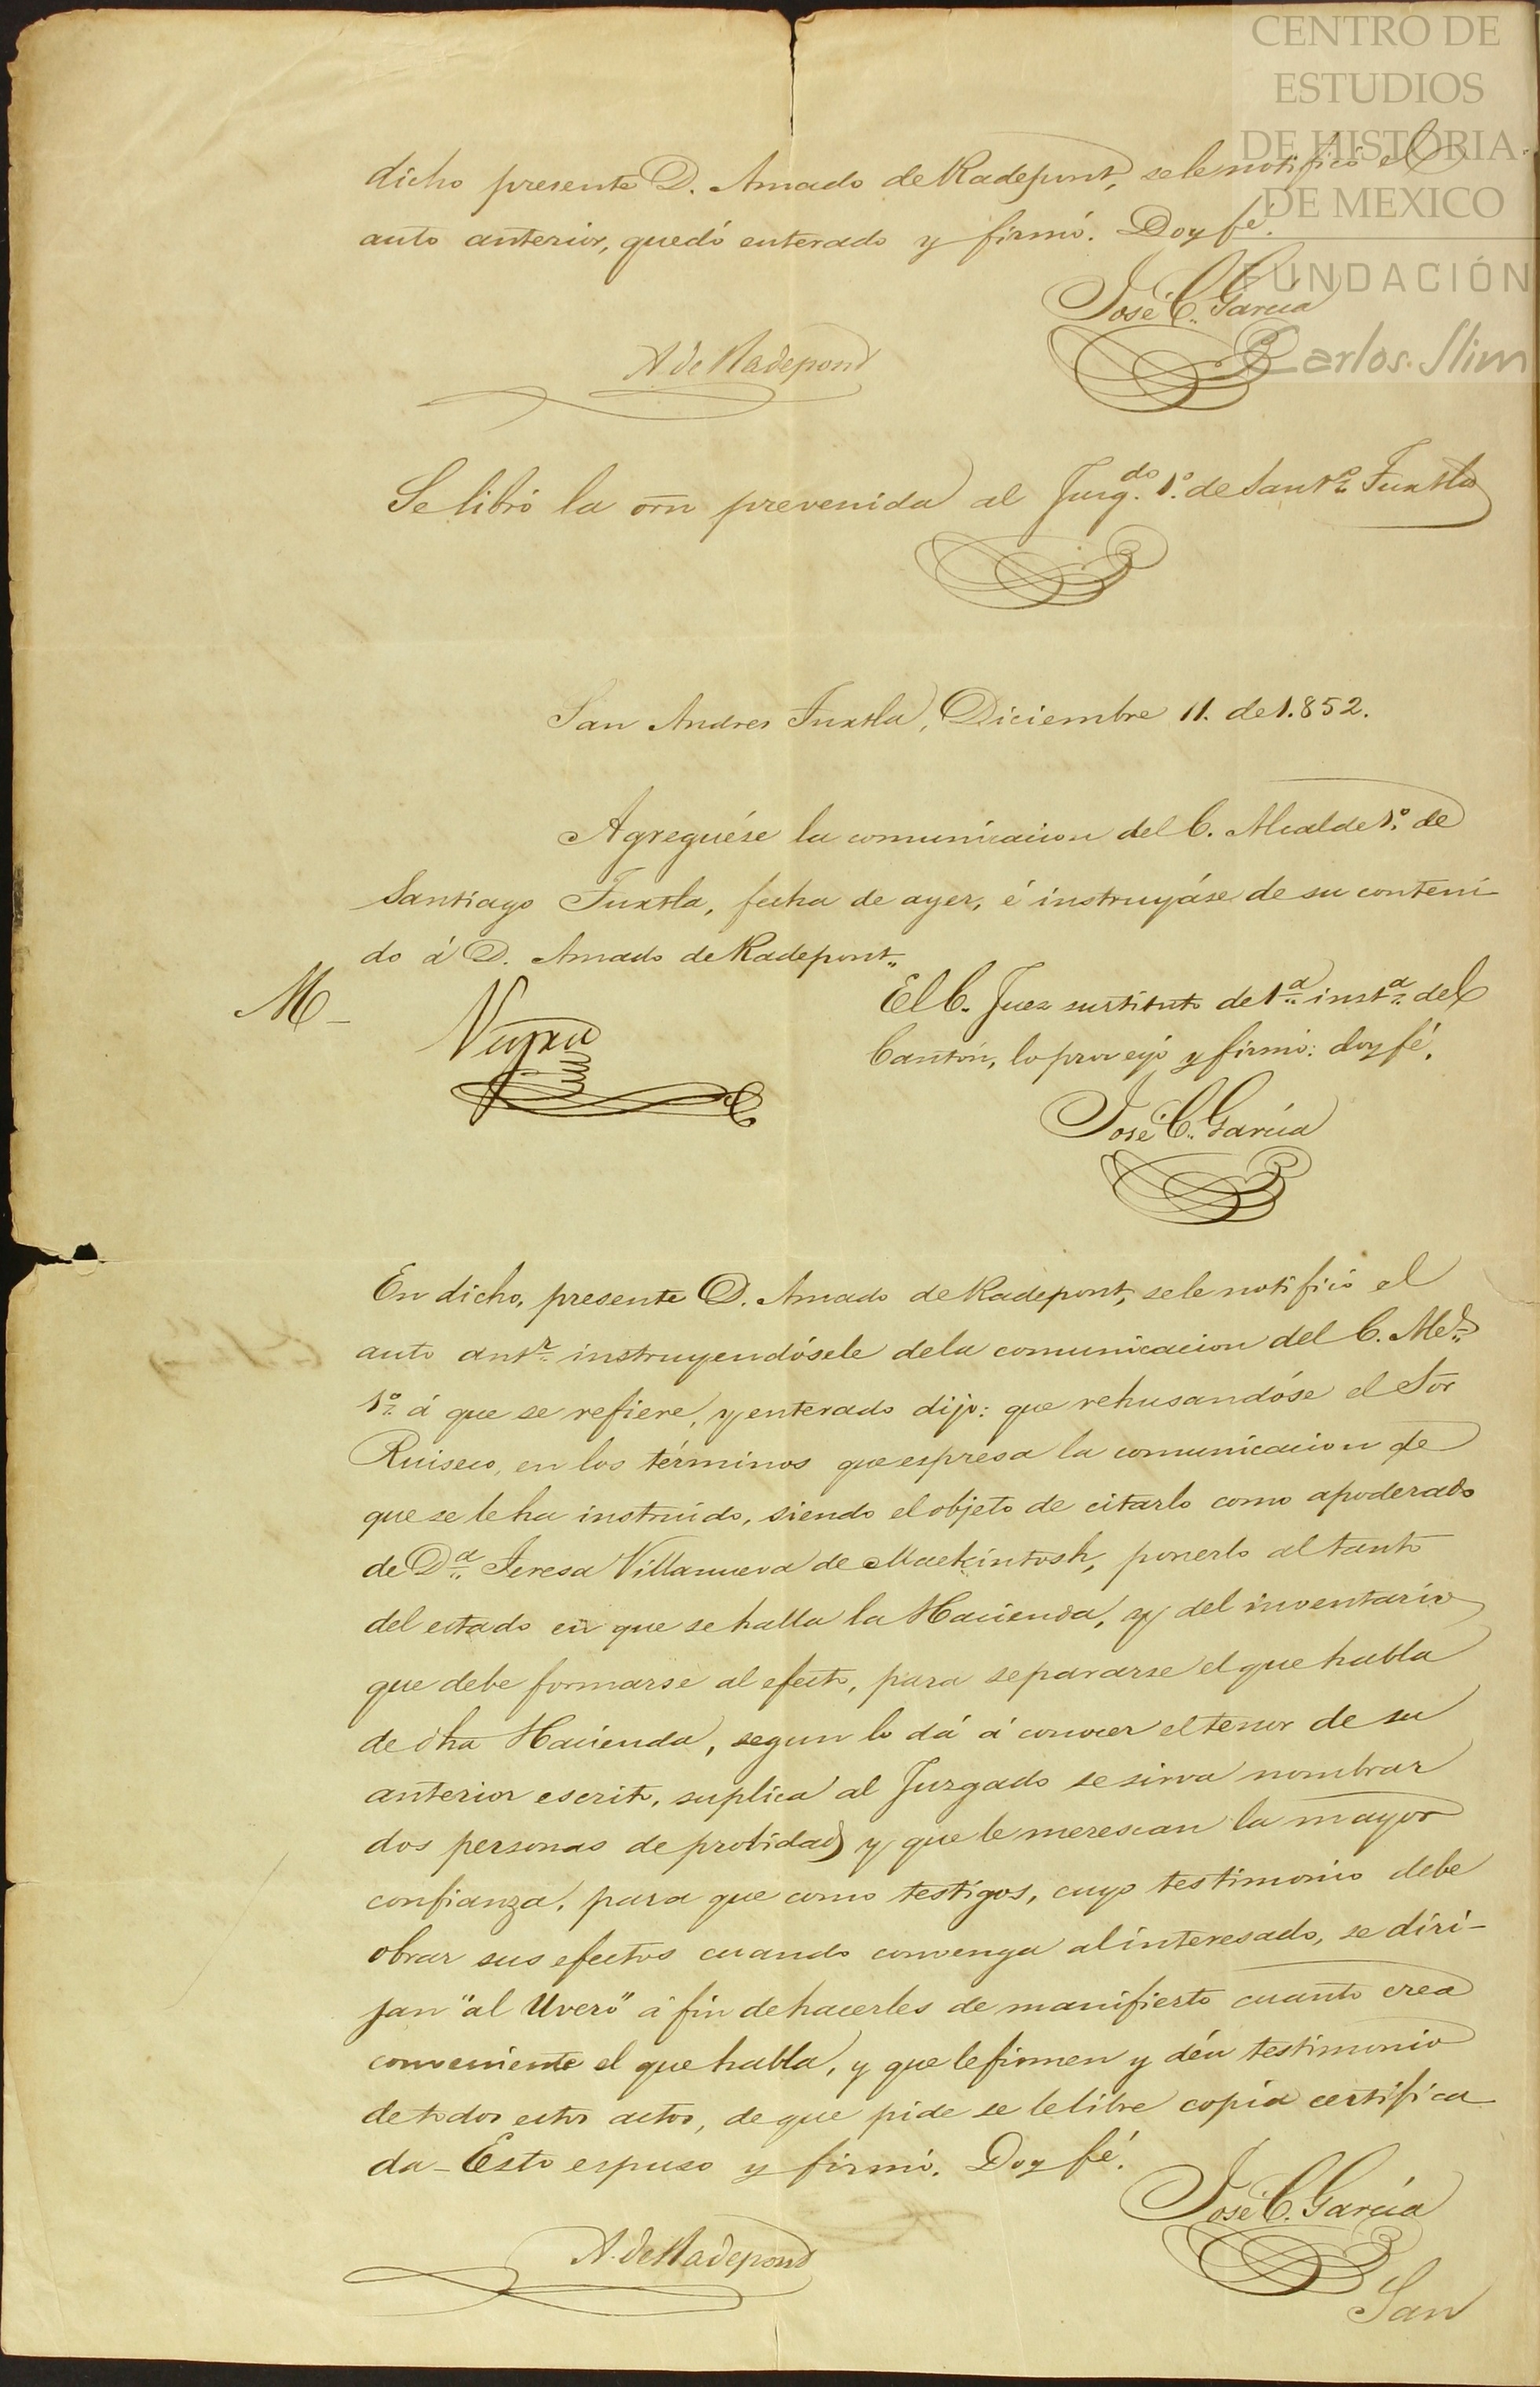 CENTRO DE
ESTUDIOS
DE HISTORIA
DE MEXICO
FUNDACIÓN
Carlos Slim
dicho presente D. Amado de Radepont, se le notificó el
auto anterior, quedó enterado y firmó. Doy fé.
José C. García
A de Radepond
Se libró la orn prevenida al Juzg.do 1º de Sant.º Tuxtla
San Andres Tuxtla, Diciembre 11. de 1.852.
Agreguése la comunicacion del C. Alcalde 1º de
Santiago Tuxtla, fecha de ayer, é instruyáse de su conteni-
do á D. Amado de Radepont.
M
El C. Juez sustituto de 1ª instª del
Canton, lo proveyó y firmó: doy fé.
José C. García
En dicho, presente D. Amado de Radepont, se le notificó el
auto antr instruyendósele de la comunicacion del C. Ale
1º á que se refiere, y enterado dijo: que rehusandóse el Sor
Ruiseco, en los términos que espresa la comunicacion de
que se le ha instruido, siendo el objeto de citarlo como apoderado
de Dª Teresa Villanueva de Mackintosh, ponerlo al tanto
del estado en que se halla la Hacienda, y del inventario
que debe formarse al efecto, para separarse el que habla
de dha Hacienda, segun lo dá á conocer el tenor de su
anterior escrito, suplica al Juzgado se sirva nombrar
dos personas de probidad y que le merescan la mayor
confianza, para que como testigos, cuyo testimonio debe
obrar sus efectos cuando convenga al interesado, se diri-
jan "al Uvero" á fin de hacerles de manifiesto cuanto crea
conveniente el que habla, y que le firmen y dén testimonio
de todos estos actos, de que pide se le libre copia certifica
da - Esto espuso y firmó. Doy fé.
José C. García
A. de Radepond
San